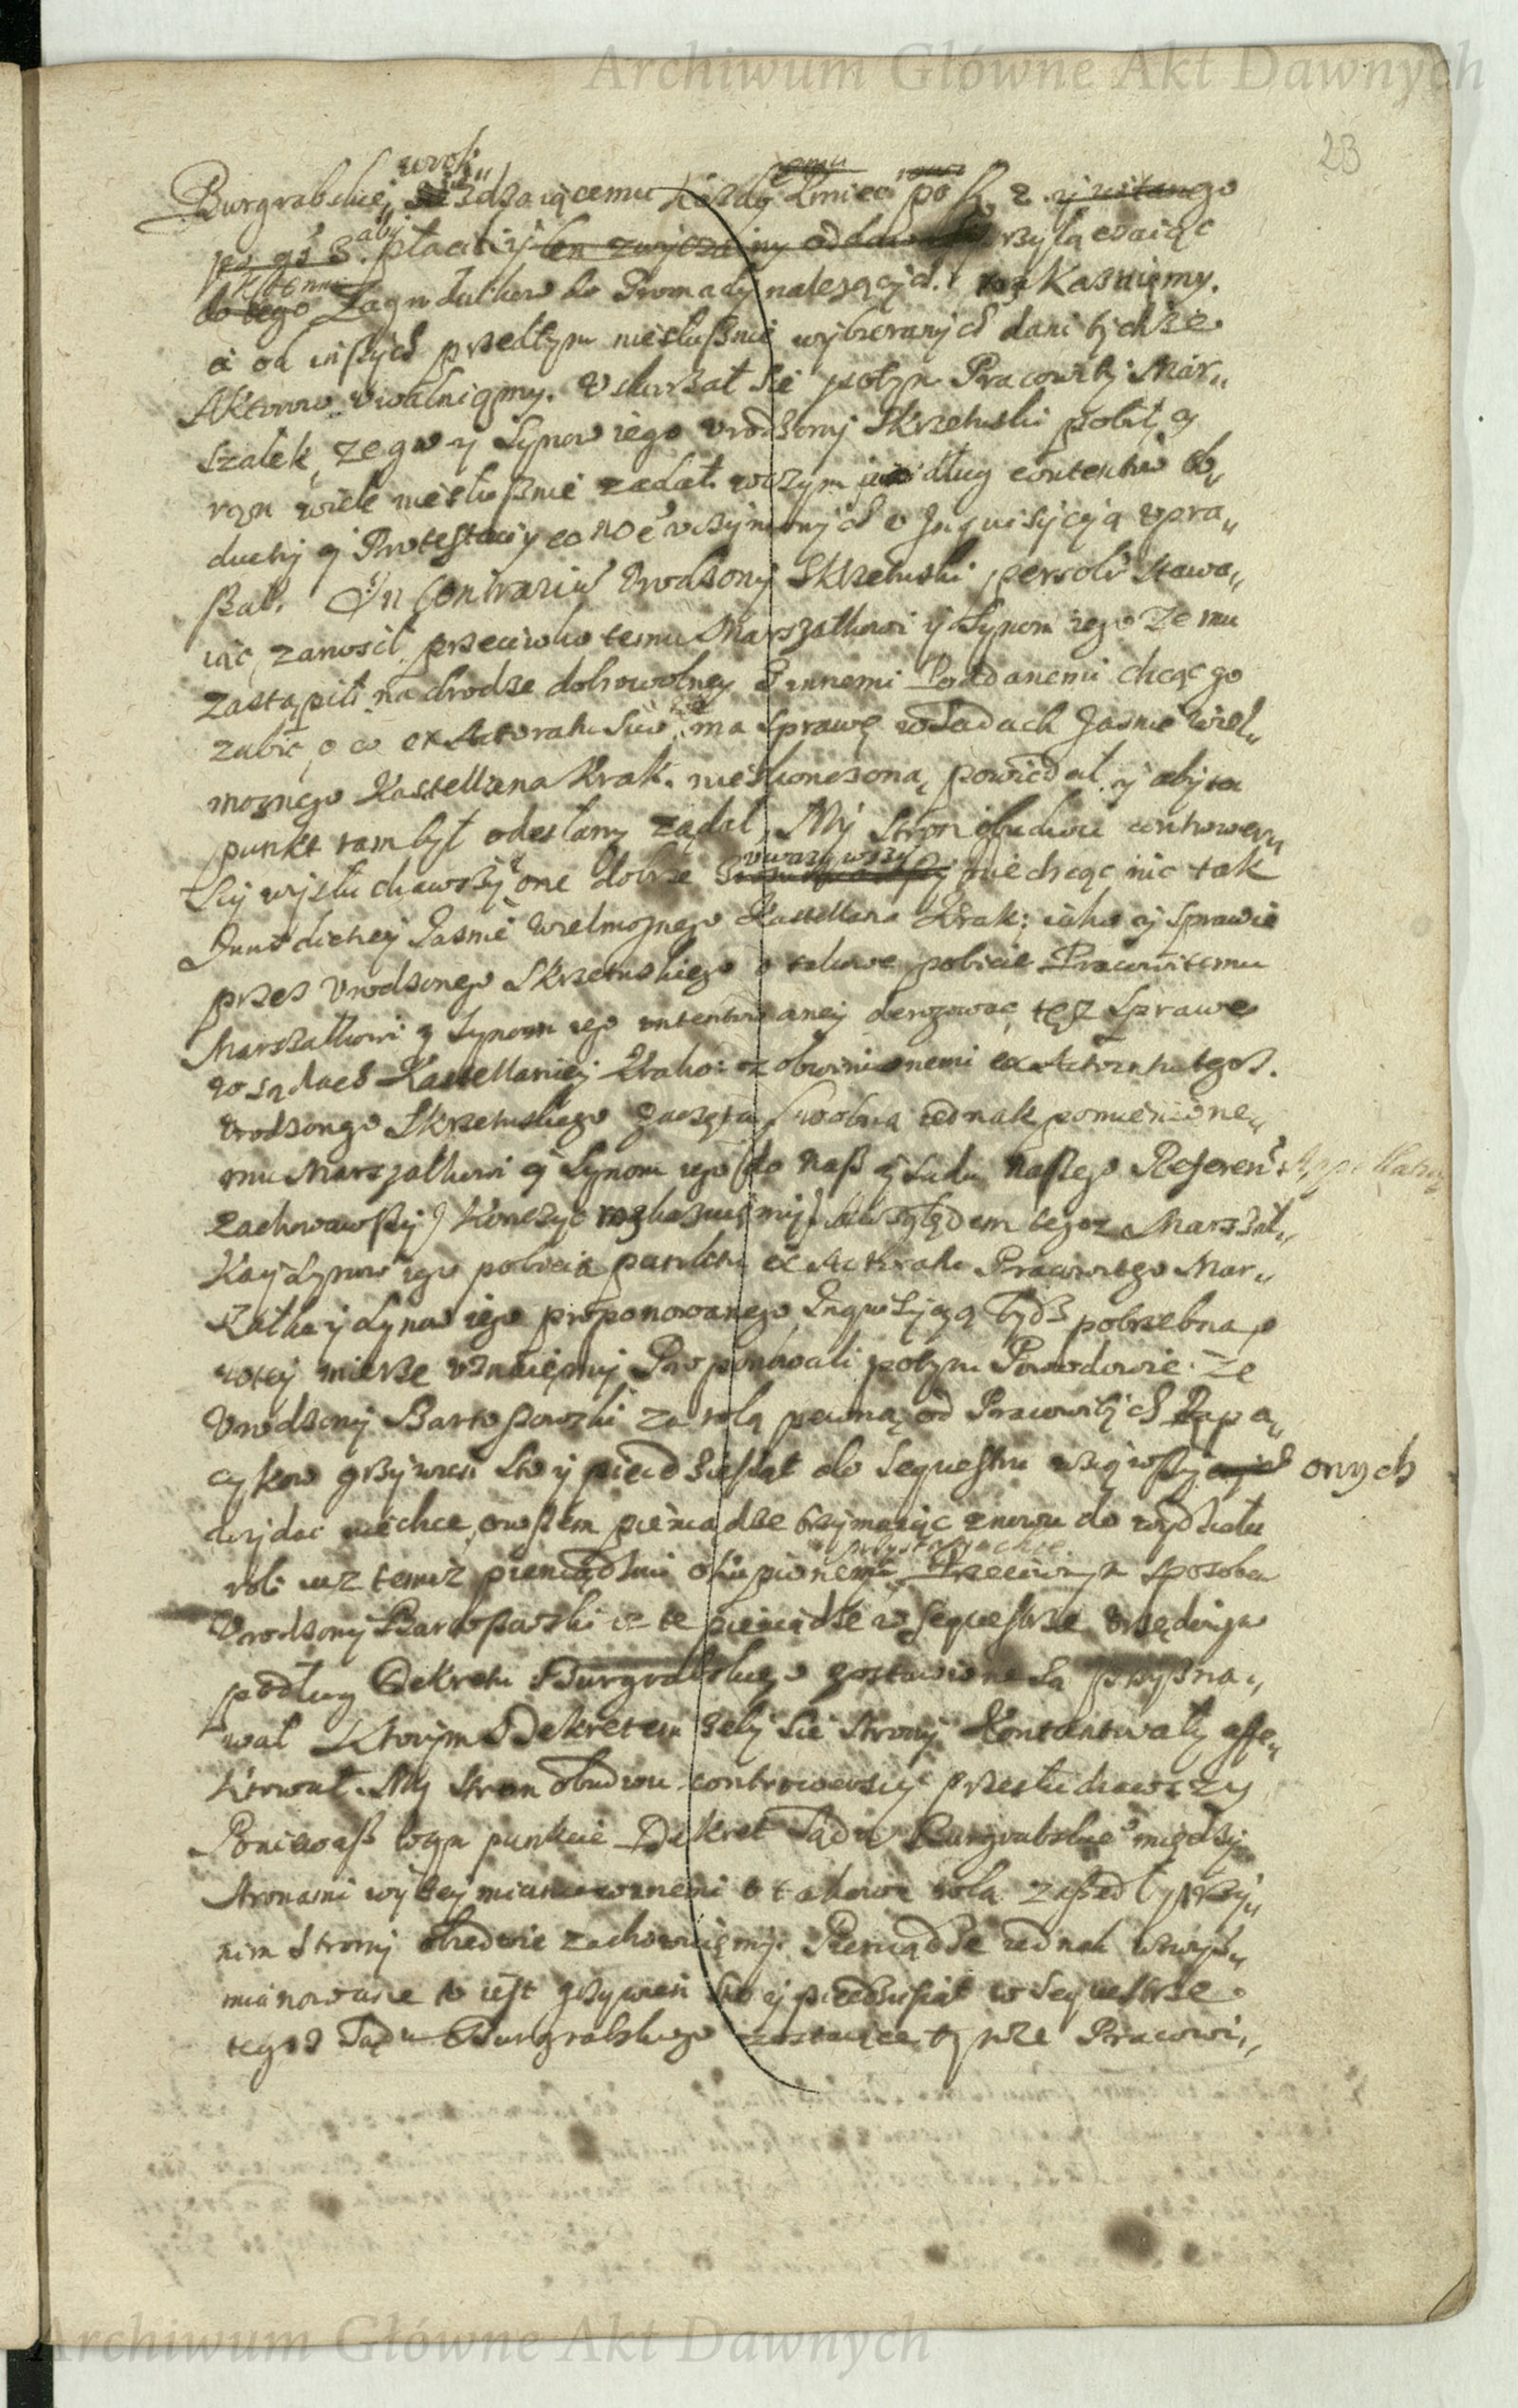 Archiwum Główne Akt Dawnych
23
wrok
Burgrabskiej zdzaiącemu Kazdy Kmiec po
aby płacili
Zagrodników do Gromady należących. rozKazuiemy.
a od inszych przedtym niesłusznie wybieranych dani tychże
Aktorow uwalniamy. Uskarżał sie potym Pracowity Mar„
szalek, ze go y Synow iego Urodzony Skrzetuski pobił, y
ran wiele niesłusznie zadał. wczym podług contentu ob„
ductij y Protestatiy eo noe uczynionych o Inquisitią upra„
szał. In Contrariu Urodzony Skrzetuski persolr stawa„
iąc zanosił przeciwko temu Marszałkowi y Synom iego Ze mu
zastąpili na drodze dobrowolney z innemi Poddanemi chcąc go
zabić, o co ex Actoratu suo ma sprawę w Sadach Jasnie Wiel„
moznego Kasztellana Krak. nieskonczoną powiedał, y aby ten
punkt tam był odesłany żądał, My stron obudwu contrower„
siy wysłuchawszy one dobrze uwazywszy, niechcąc nic tak
Jurisdictiey Jasnie Wielmoznego Kasztellana Krak: iako y sprawie
przez Urodzonego Skrzetuskiego o takowe pobicie Pracowitemu
Marszałkowi y Synom iego intentowaney derogować, tęz Sprawę
w sądach Kasztellaniey Krako: z obwinionemi ex Actoratu tegoz.
Urodzonego Skrzetuskiego zaczętą (wolną iednak pomienione„
mu Marszałkowi y Synom iego do Nasz y Sadu Naszego Referen: Appellatią
zachowawszy) Konczyc rozkazuiemy. Względem tegoz Marszał„
Ka y Synow iego pobicia punktu ex Actoratu Pracowitego Mar„
szałka y Synow iego proponowanego Inquisitią bydz potrzebna
w tey mierze uznaiemy. Proponowali potym Powodowie. Ze
Urodzony Bartoszowski za rolą pewną od Pracowitych Łapa„
cykow grzywien Sto y pięcdziesiąt do Sequestru wziąwszy onych
wydac niechce, owszem pieniądze trzymaiąc znowu do wydziału
roli iuz temiz pieniądzmi okupioney przystąpic chce. Przeciwnym sposobem
Urodzony Bartoszowski ze te pieniądze w Sequestrze Urzędowym
podług Dekretu Burgrabskiego zostawione są przyzna„
wał Ktorym Dekretem zeby sie strony Kontentowały affe„
ktował. My stron obudwu controwersiy przesłuchawszy
Poniewasz wtym punkcie Dekret Sądu Burgrabskie° między
stronami wyżey mianowanemi o takową rolą zaszedł, przy„
nim Strony obiedwie zachowuiemy. Pieniądze iednak wwyż„
mianowane to iest grzywien Sto y pięcdziesiąt w Sequestrze
tegoz Sądu Burgrabskiego zostaiące, tymże Pracowi„
Archiwum Główne Akt Dawnych